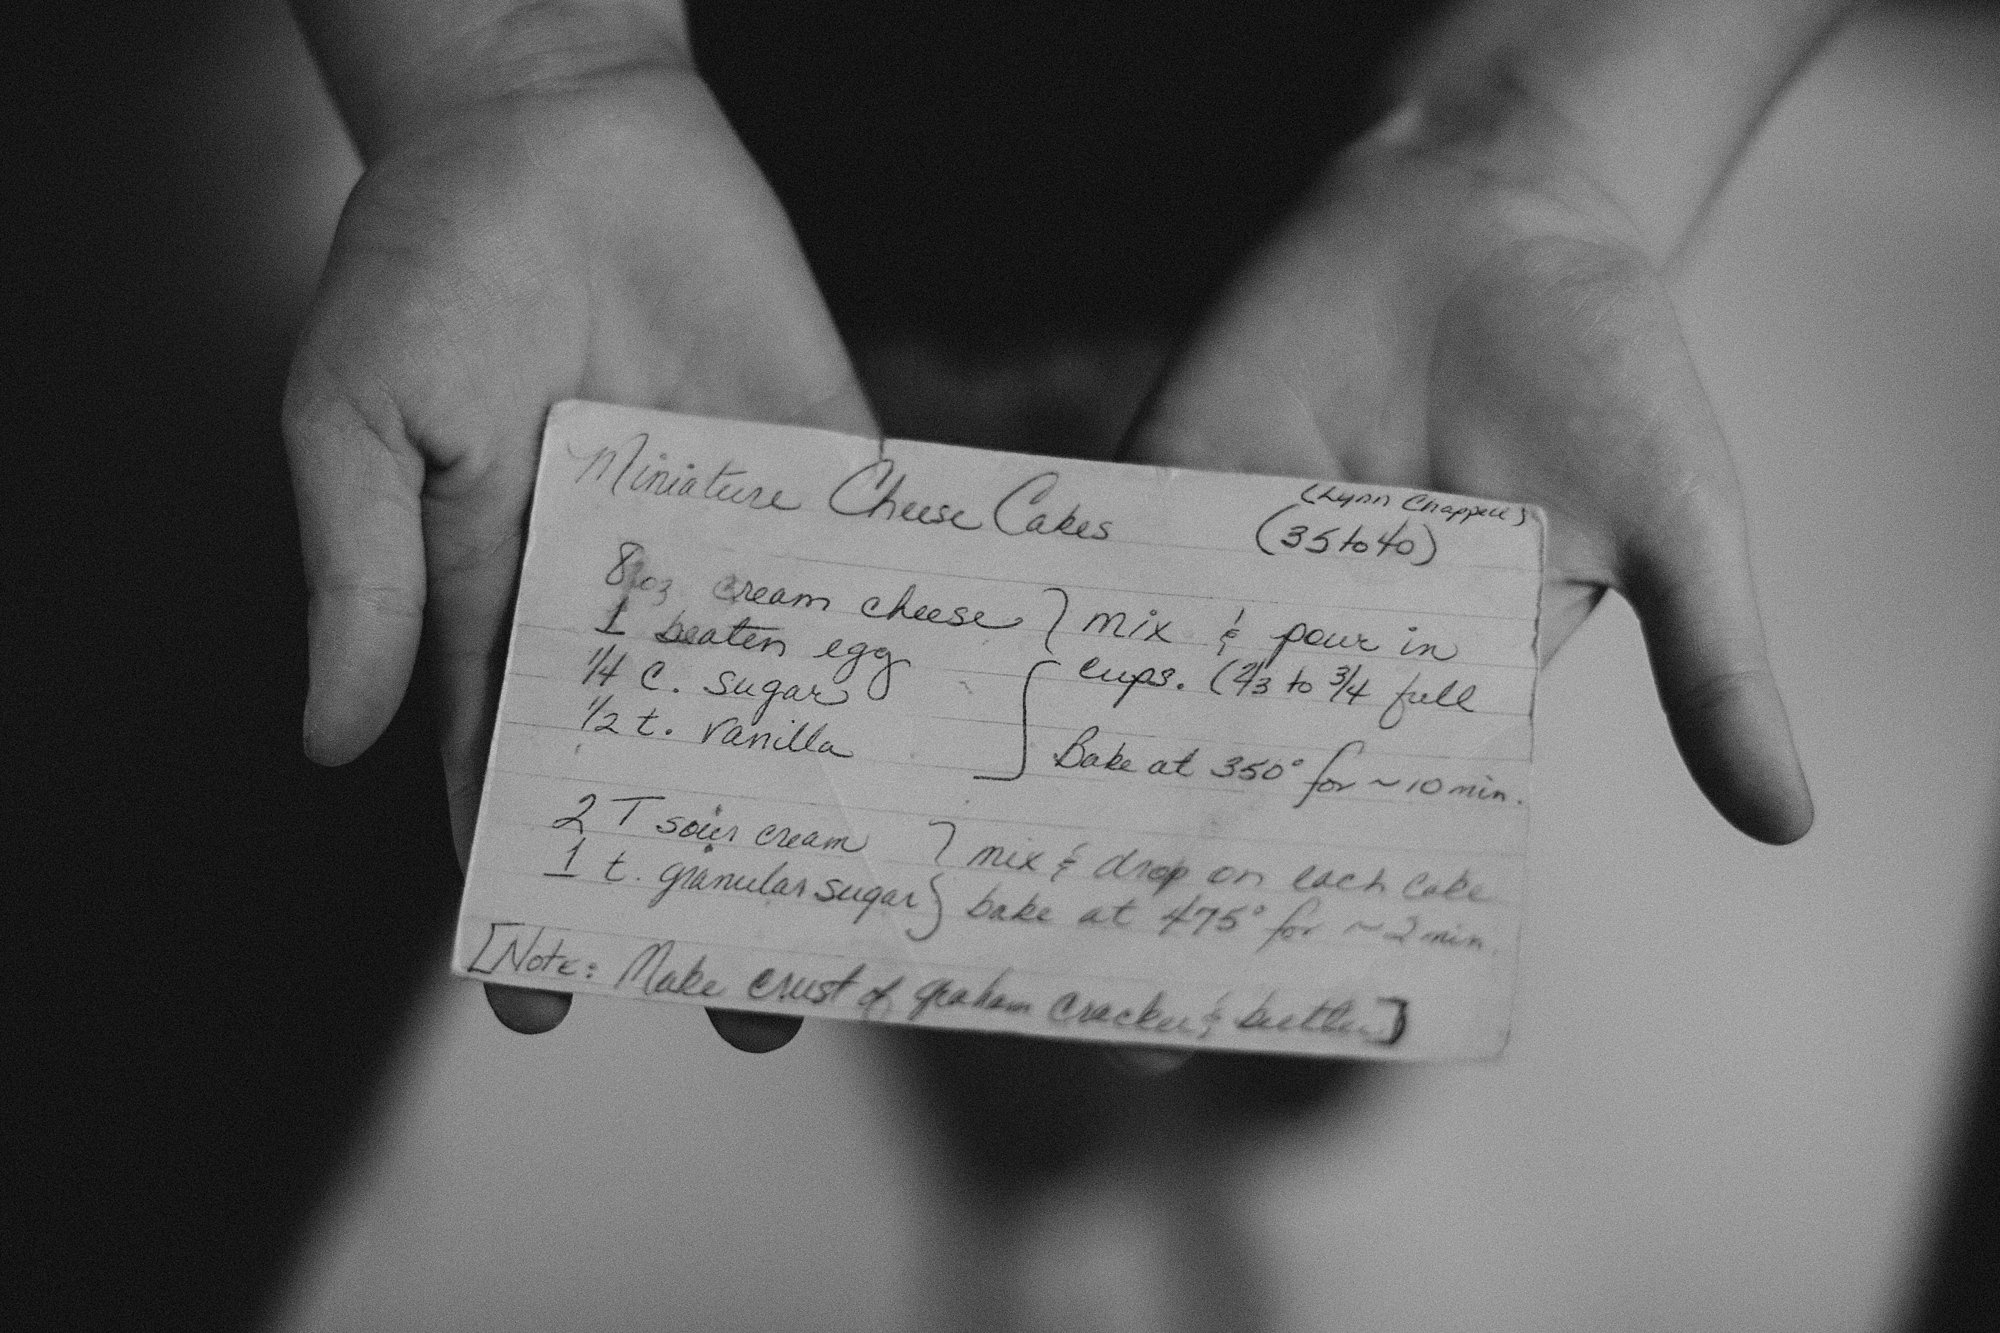 Miniature Cheese Cakes
(Lynn Chappell)
(35 to 40)
8 oz cream cheese } mix & pour in
1 beaten egg
cups. (2/3 to 3/4 full
1/4 c. sugar
1/2 t. vanilla
Bake at 350° for ~10 min.
2 T sour cream } mix & drop on each cake
1 t. granular sugar } bake at 475° for ~2 min.
[Note: Make crust of graham cracker & butter]